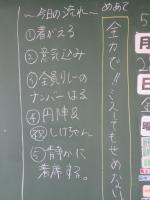 〜今日の流れ〜
①着がえる
②意気込み
③全員リレーの
ナンバーはる
④円陣&
㊙しげちゃん
⑤静かに
着席する。
めあて
全力で!!ミスしてもせめない
5
月